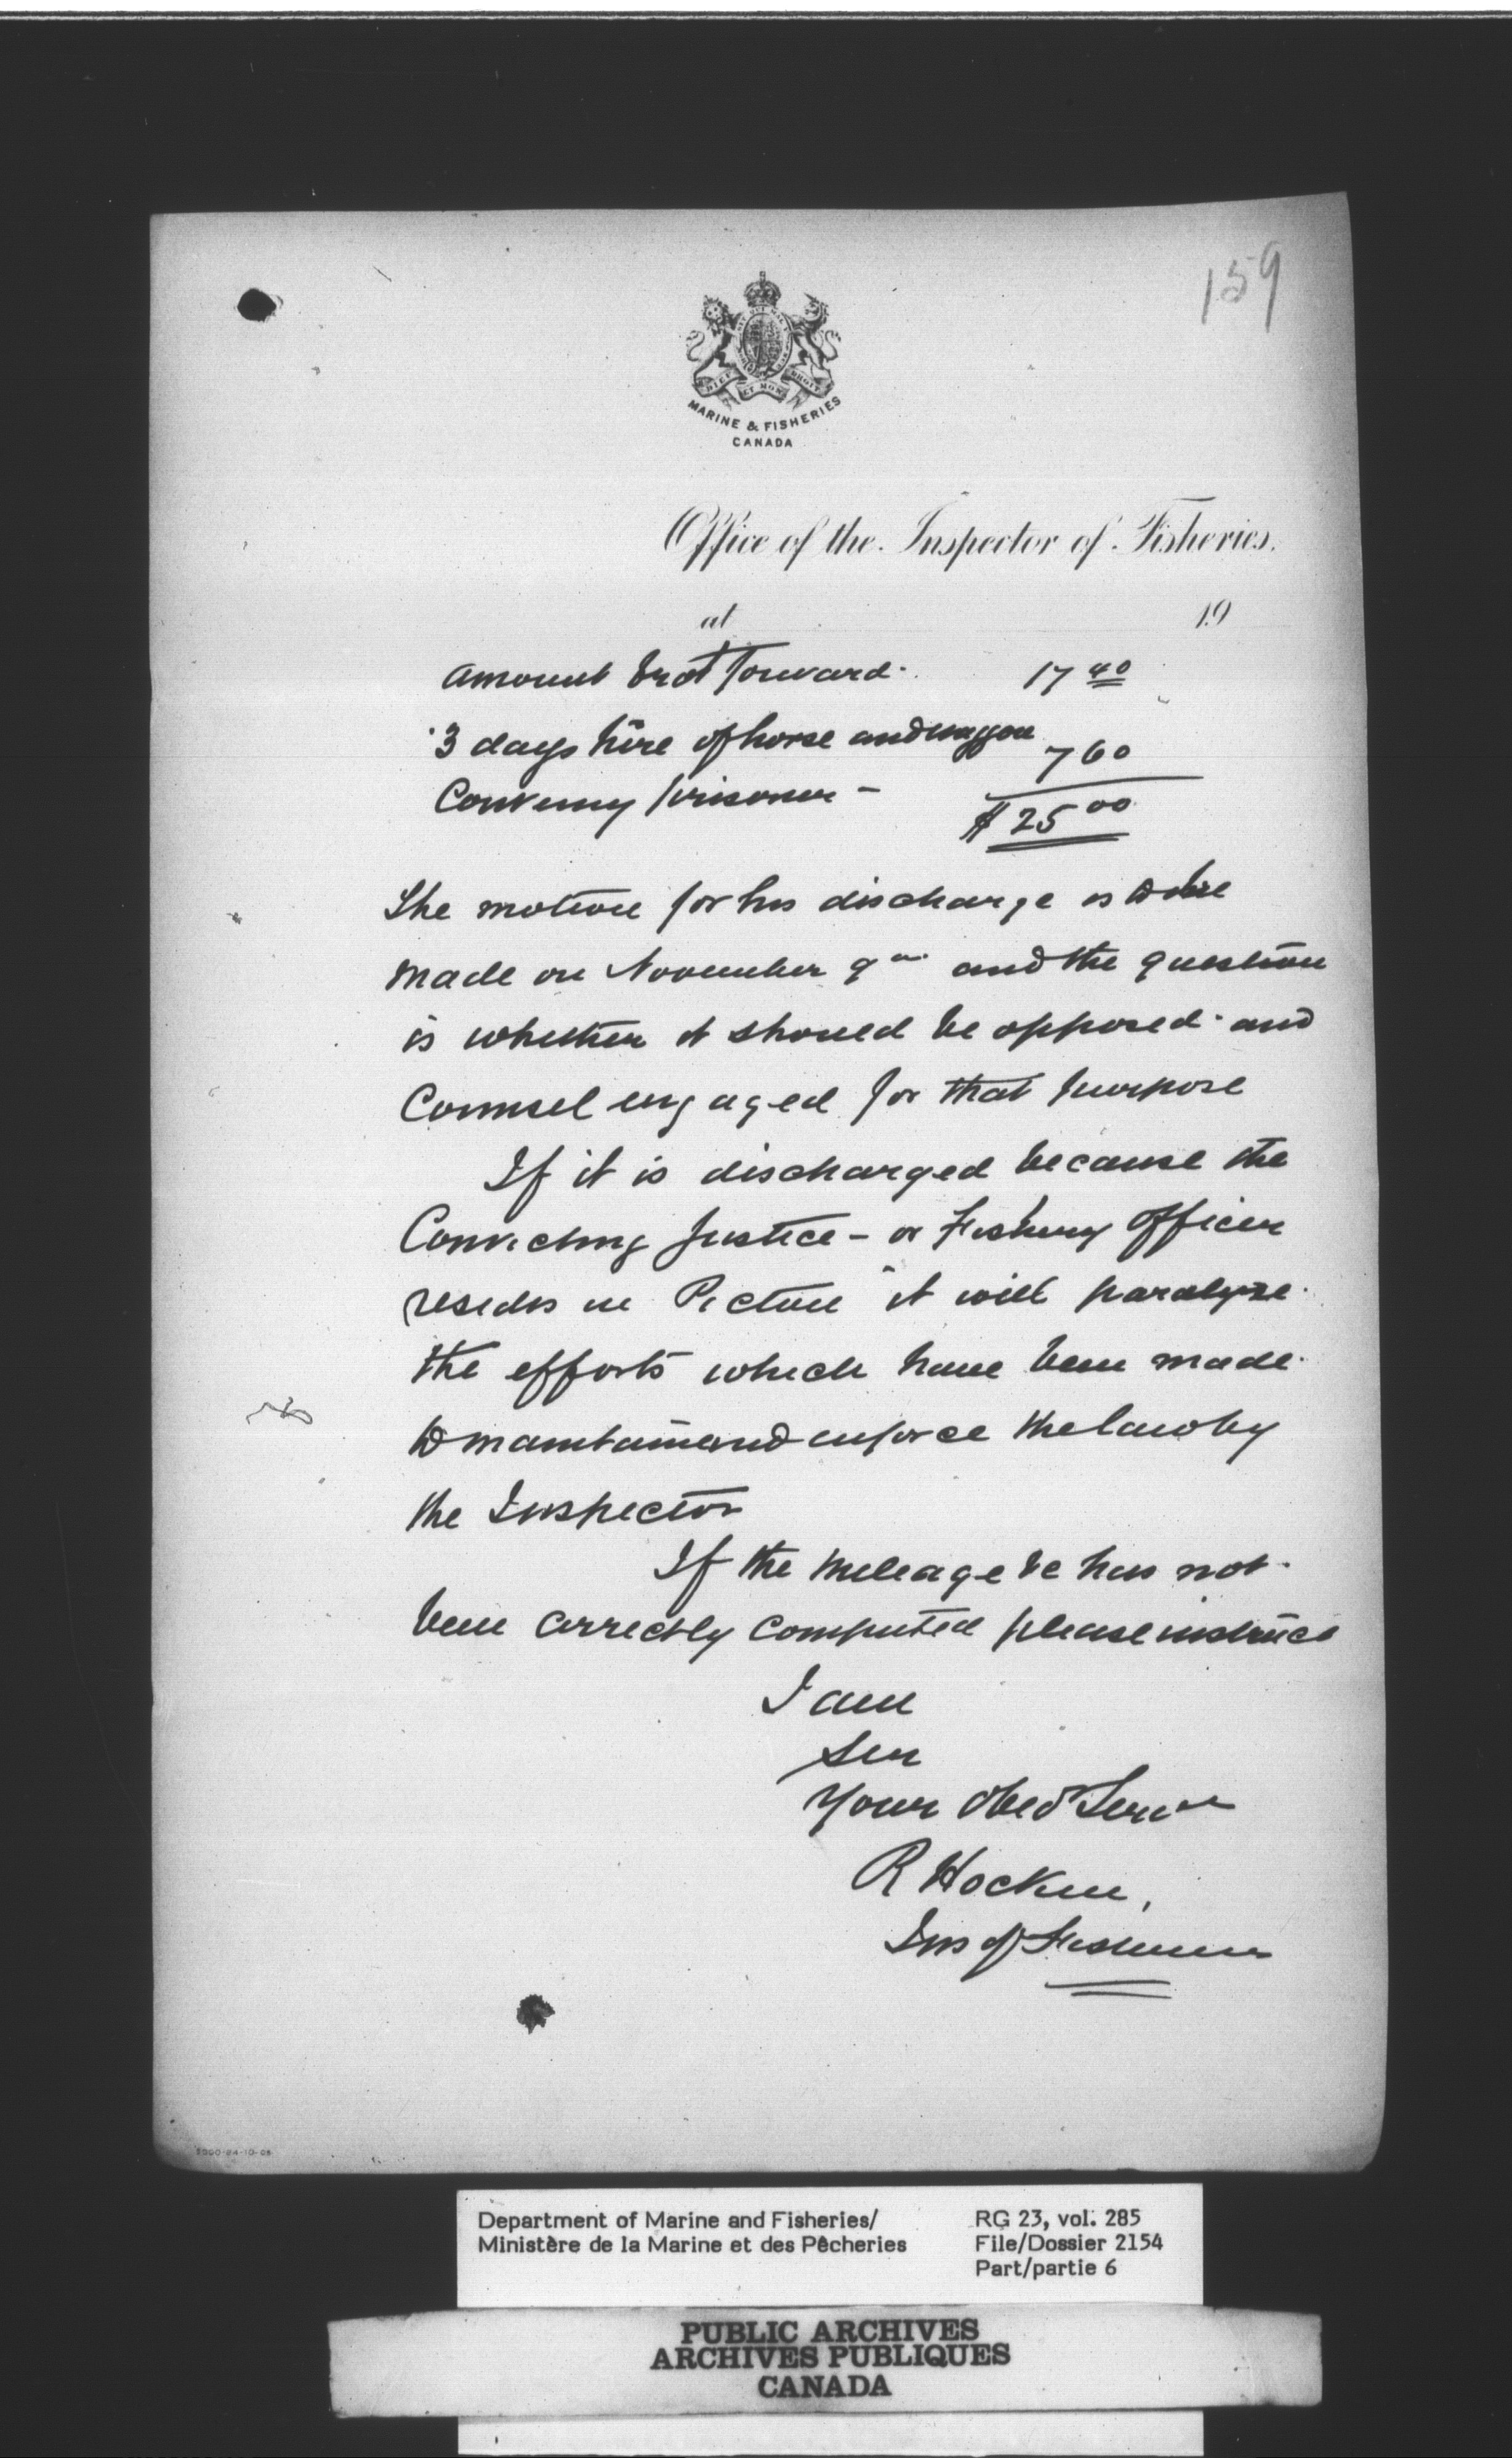 159
DIEU ET MON DROIT
MARINE & FISHERIES
CANADA
Office of the Inspector of Fisheries.
at 19
Amount brot forward. 17 40
3 days hire of horse and waggon
7 60
Conveying prisoner -
$ 25 00
The motion for his discharge is to be
made on November 9th and the question
is whether it should be opposed and
Counsel engaged for that purpose
If it is discharged because the
Convicting Justice - or Fishery Officer
resides in Pictou it will paralyze
the efforts which have been made
to maintain and enforce the law by
the Inspector
If the mileage &c has not
been correctly computed please instruct
I am
Sir
Your Obed Servt
R Hockin,
Ins of Fisheries
5000-24-10-05
Department of Marine and Fisheries/
Ministère de la Marine et des Pêcheries
RG 23, vol. 285
File/Dossier 2154
Part/partie 6
PUBLIC ARCHIVES
ARCHIVES PUBLIQUES
CANADA